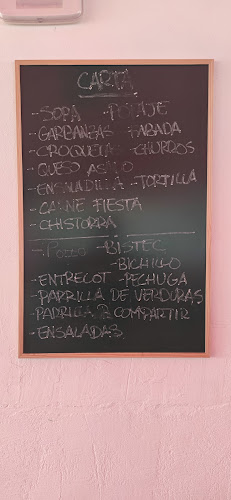 CARTA
-SOPA -POTAJE
-GARBANZAS FABADA
-CROQUETAS -CHURROS
-QUESO ASADO
-ENSALADILLA -TORTILLA
-CARNE FIESTA
-CHISTORRA
-POLLO -BISTEC
-BICHILLO
-ENTRECOT -PECHUGA
-PARRILLA DE VERDURAS
-PARRILLA COMPARTIR
-ENSALADAS